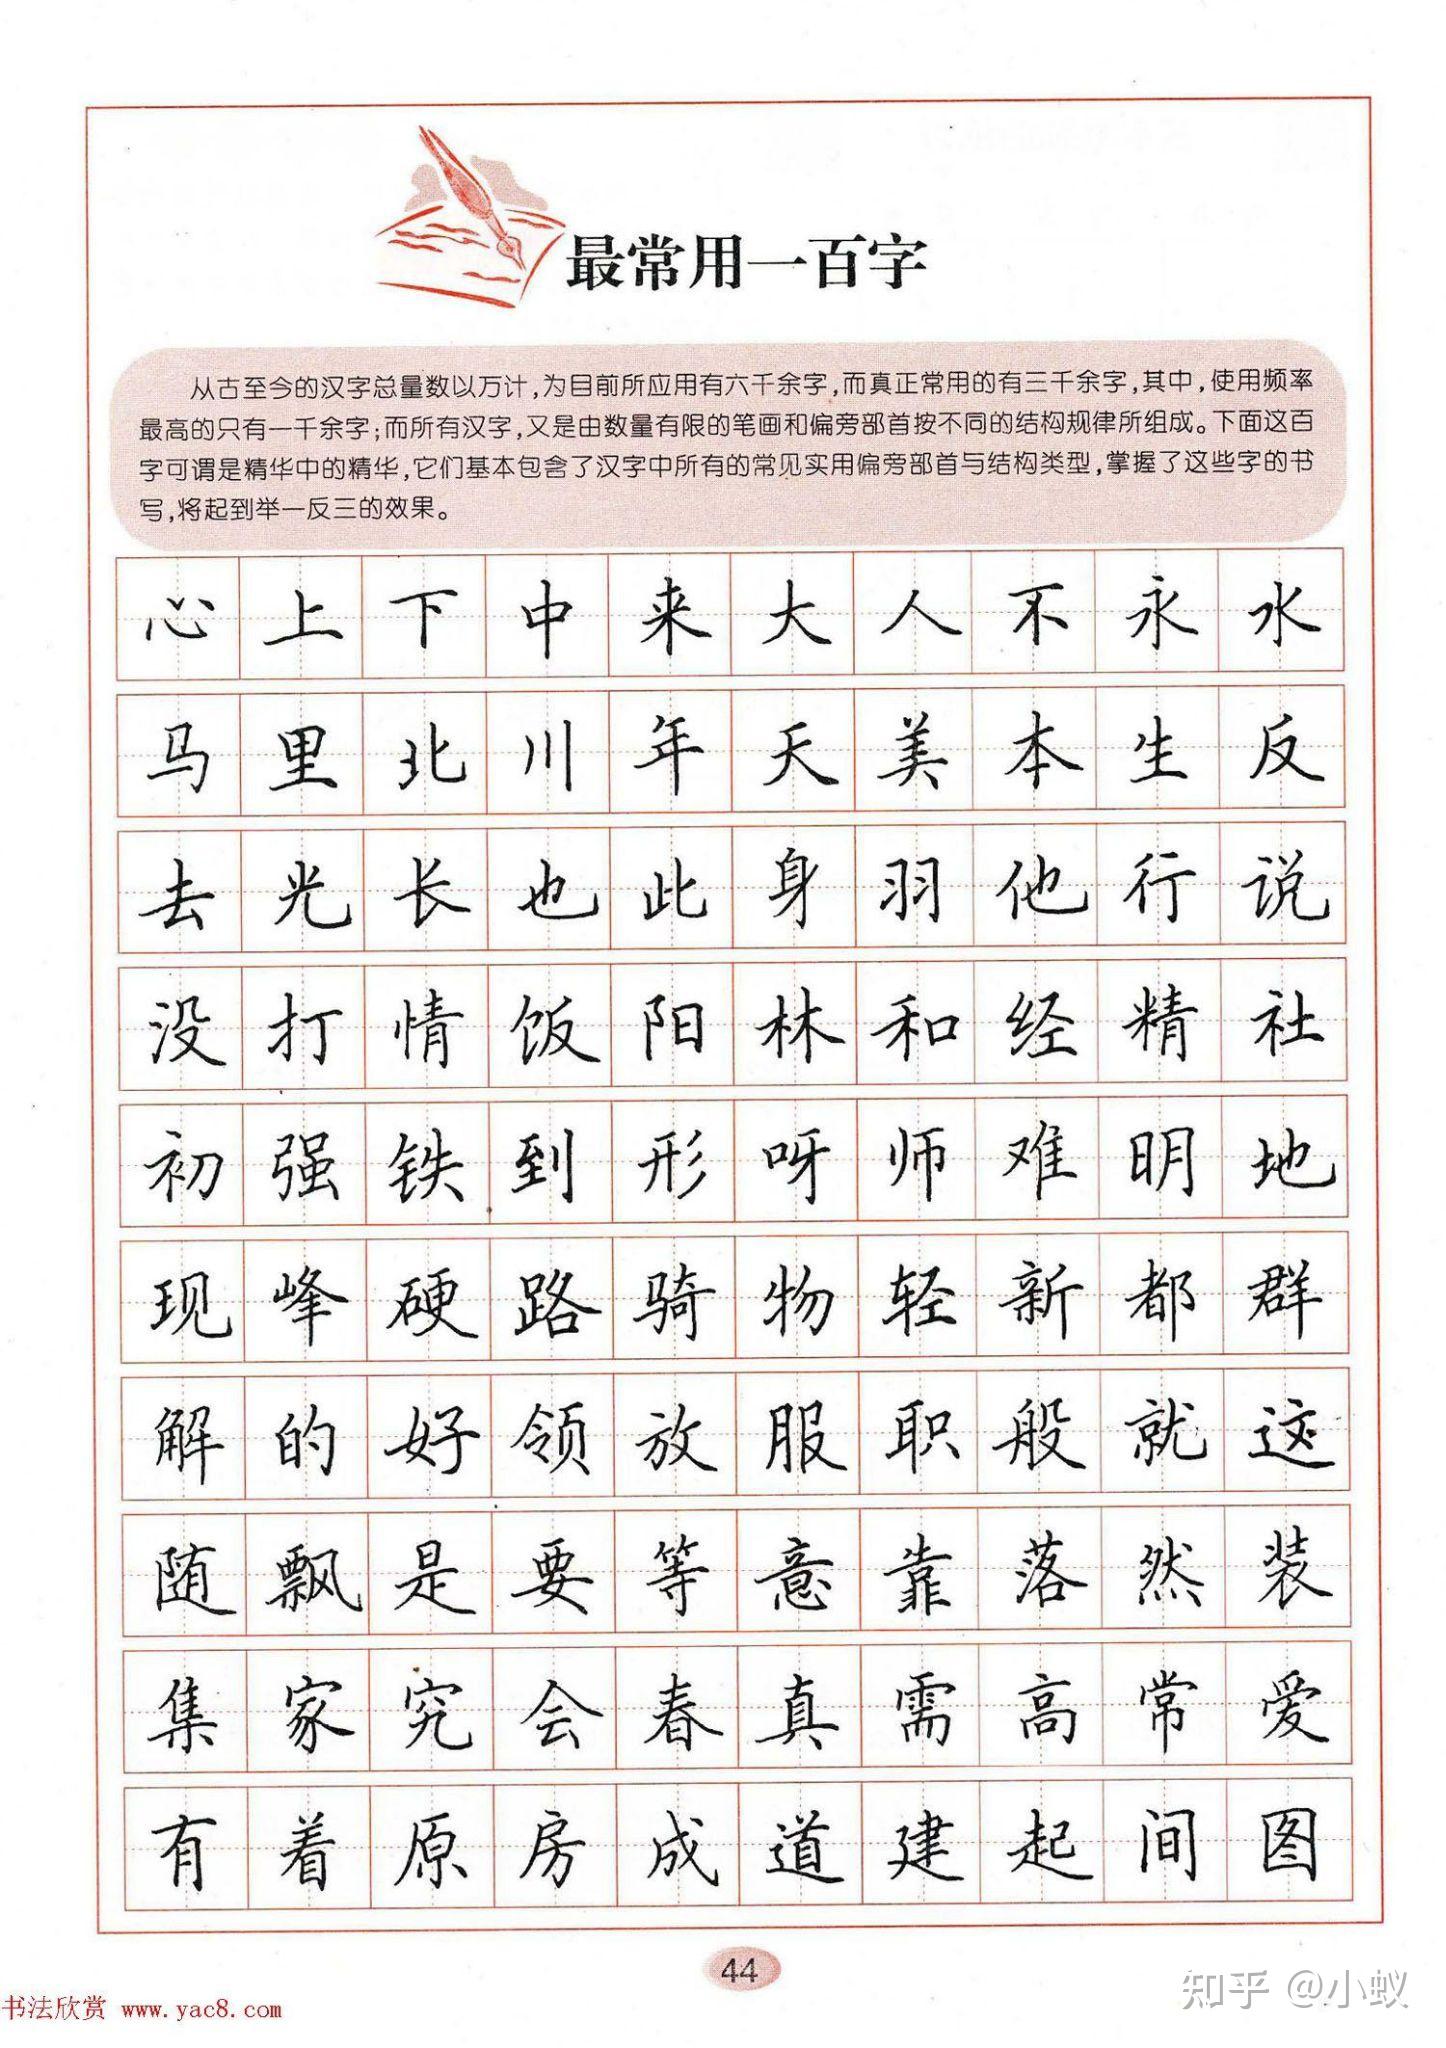 最常用一百字
从古至今的汉字总量数以万计,为目前所应用有六千余字,而真正常用的有三千余字,其中,使用频率
最高的只有一千余字;而所有汉字,又是由数量有限的笔画和偏旁部首按不同的结构规律所组成。下面这百
字可谓是精华中的精华,它们基本包含了汉字中所有的常见实用偏旁部首与结构类型,掌握了这些字的书
写,将起到举一反三的效果。
心上下中来大人不永水
马里北川年天美本生反
去光长也此身羽他行说
没打情饭阳林和经精社
初强铁到形呀师难明地
现峰硬路骑物轻新都群
解的好领放服职般就这
随飘是要等意靠落然装
集家究会春真需高常爱
有着原房成道建起间图
44
书法欣赏 www.yac8.com
知乎 @小蚁